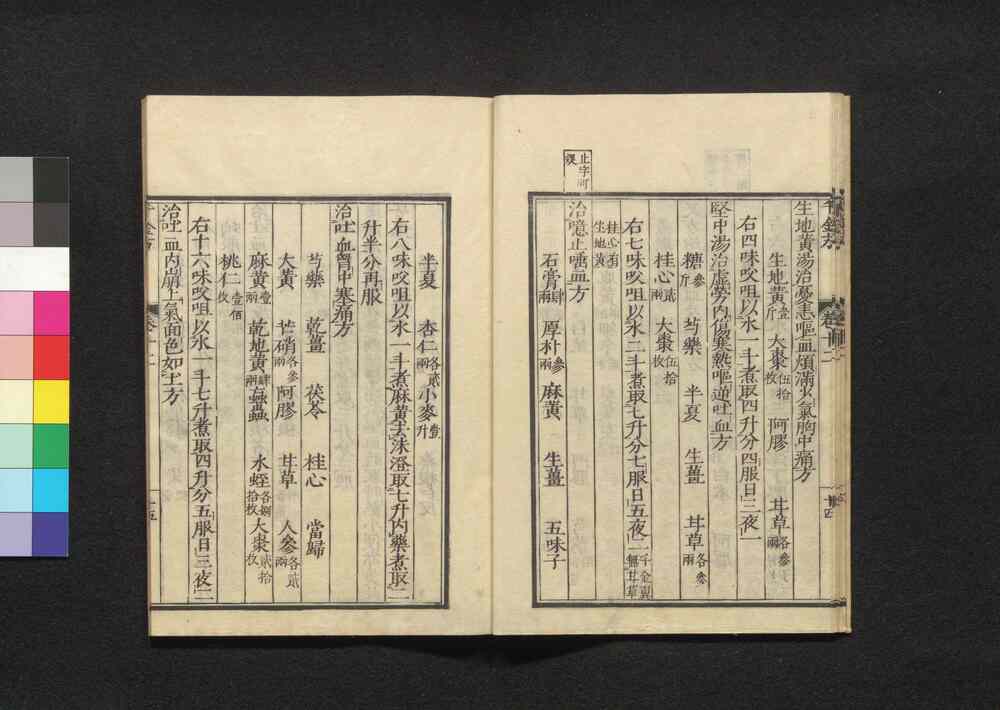 生地黃湯治憂恚嘔血煩滿少氣胸中痛方
生地黃壹斤 大棗伍拾枚 阿膠 甘草各參兩
右四味㕮咀以水一斗煮取四升分四服日三夜一
堅中湯治虛勞內傷寒熱嘔逆吐血方
糖參斤 芍藥 半夏 生薑 甘草各參兩
桂心貳兩 大棗伍拾枚
右七味㕮咀以水二斗煮取七升分七服日五夜二千金翼無甘草
桂心有生地黃
治噫止唾血方
止字可
石膏肆兩 厚朴參兩 麻黃 生薑 五味子
半夏 杏仁各貳兩 小麥壹升
右八味㕮咀以水一斗煮麻黃去沫澄取七升內藥煮取二
升半分再服
治吐血胷中塞痛方
芍藥 乾薑 茯苓 桂心 當歸
大黃 芒硝各參兩 阿膠 甘草 人參各貳兩
麻黃壹兩 乾地黃肆兩 蝱蟲 水蛭各捌拾枚 大棗貳拾枚
桃仁壹佰枚
右十六味㕮咀以水一斗七升煮取四升分五服日三夜二
治吐血內崩上氣面色如土方